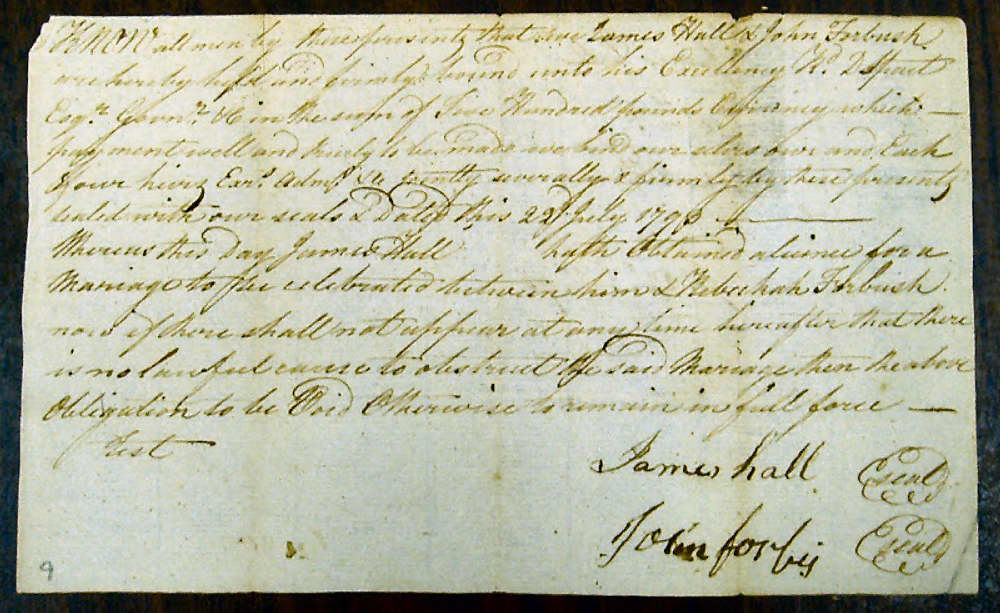 KNOW all men by these presents that we James Hall & John Forbush
are hereby held and firmly bound unto his Excellency Rd. D Speart
Esqr. Govnr. &c in the sum of Five Hundred pounds Currency which —
payment well and truly to be made we bind our selves our and Each
of our hiers Exrs. Admrs. &c jointly severally & firmly by these presents
sealed with our seals & Dated this 22d July 1790
Whereas this Day James Hall hath Obtained a licence for a
Mariage to be celebrated between him & Rebeckah Forbush.
now if there shall not appear at any time hereafter that there
is no lawful cause to obstruct the said Mariage then the above
Obligation to be Void Otherwise to remain in full force —
Test
James hall (seal)
John forbis (seal)
9